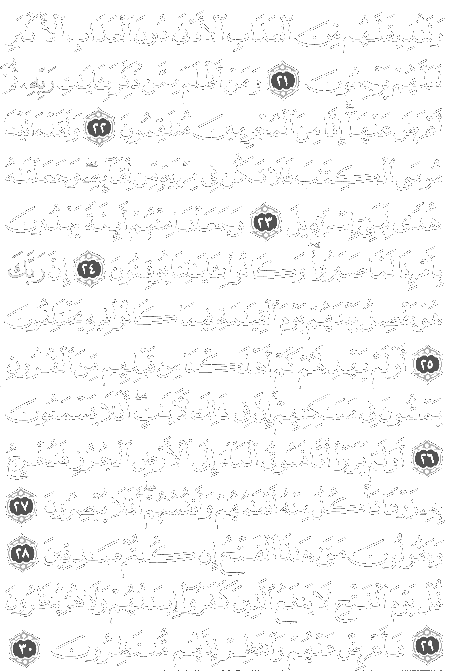 وَلَنُذِيقَنَّهُم مِّنَ ٱلْعَذَابِ ٱلْأَدْنَىٰ دُونَ ٱلْعَذَابِ ٱلْأَكْبَرِ
لَعَلَّهُمْ يَرْجِعُونَ ٢١ وَمَنْ أَظْلَمُ مِمَّن ذُكِّرَ بِـَٔايَـٰتِ رَبِّهِۦ ثُمَّ
أَعْرَضَ عَنْهَآ إِنَّا مِنَ ٱلْمُجْرِمِينَ مُنتَقِمُونَ ٢٢ وَلَقَدْ ءَاتَيْنَا
مُوسَى ٱلْكِتَـٰبَ فَلَا تَكُن فِى مِرْيَةٍ مِّن لِّقَآئِهِۦ وَجَعَلْنَـٰهُ
هُدًى لِّبَنِىٓ إِسْرَٰٓءِيلَ ٢٣ وَجَعَلْنَا مِنْهُمْ أَئِمَّةً يَهْدُونَ
بِأَمْرِنَا لَمَّا صَبَرُوا۟ وَكَانُوا۟ بِـَٔايَـٰتِنَا يُوقِنُونَ ٢٤ إِنَّ رَبَّكَ
هُوَ يَفْصِلُ بَيْنَهُمْ يَوْمَ ٱلْقِيَـٰمَةِ فِيمَا كَانُوا۟ فِيهِ يَخْتَلِفُونَ
٢٥ أَوَلَمْ يَهْدِ لَهُمْ كَمْ أَهْلَكْنَا مِن قَبْلِهِم مِّنَ ٱلْقُرُونِ
يَمْشُونَ فِى مَسَـٰكِنِهِمْ إِنَّ فِى ذَٰلِكَ لَـَٔايَـٰتٍ أَفَلَا يَسْمَعُونَ
٢٦ أَوَلَمْ يَرَوْا۟ أَنَّا نَسُوقُ ٱلْمَآءَ إِلَى ٱلْأَرْضِ ٱلْجُرُزِ فَنُخْرِجُ
بِهِۦ زَرْعًا تَأْكُلُ مِنْهُ أَنْعَـٰمُهُمْ وَأَنفُسُهُمْ أَفَلَا يُبْصِرُونَ ٢٧
وَيَقُولُونَ مَتَىٰ هَـٰذَا ٱلْفَتْحُ إِن كُنتُمْ صَـٰدِقِينَ ٢٨
قُلْ يَوْمَ ٱلْفَتْحِ لَا يَنفَعُ ٱلَّذِينَ كَفَرُوٓا۟ إِيمَـٰنُهُمْ وَلَا هُمْ يُنظَرُونَ
٢٩ فَأَعْرِضْ عَنْهُمْ وَٱنتَظِرْ إِنَّهُم مُّنتَظِرُونَ ٣٠